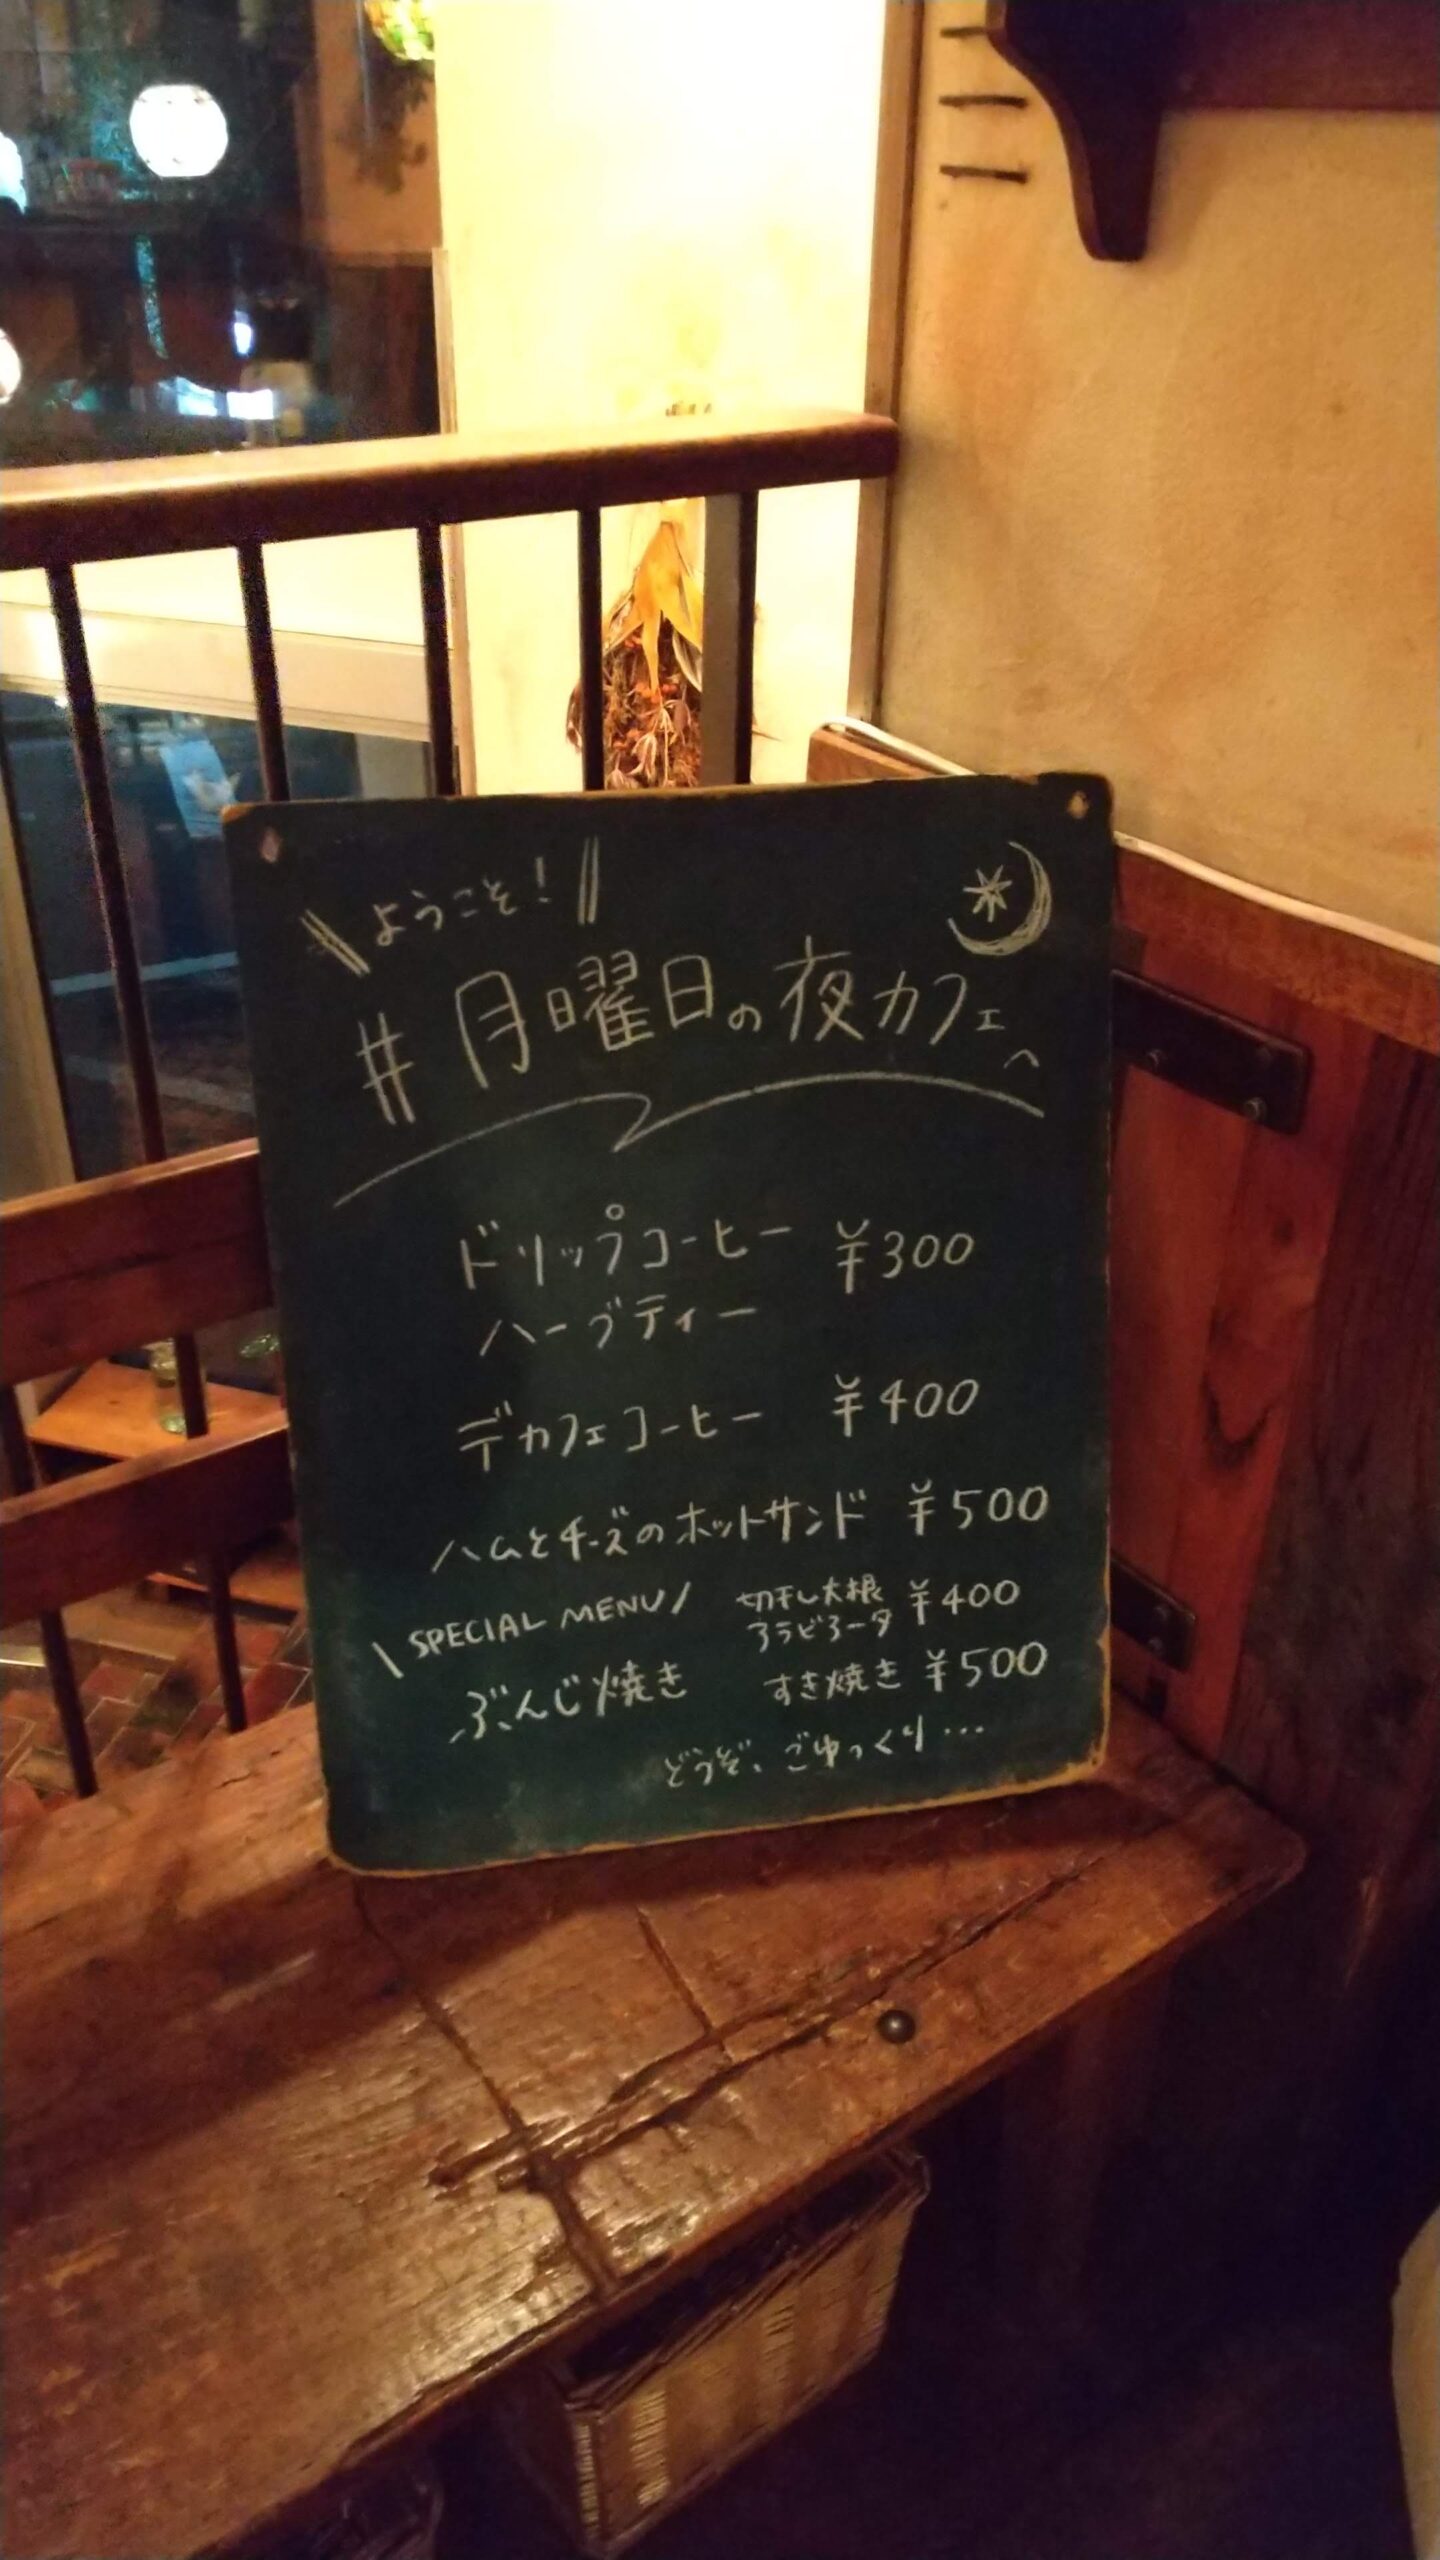 ようこそ!
#月曜日の夜カフェへ
ドリップコーヒー ¥300
ハーブティー
デカフェコーヒー ¥400
ハムとチーズのホットサンド ¥500
SPECIAL MENU
切干し大根
アラビアータ ¥400
ぶんじ焼き すき焼き ¥500
どうぞ、ごゆっくり…